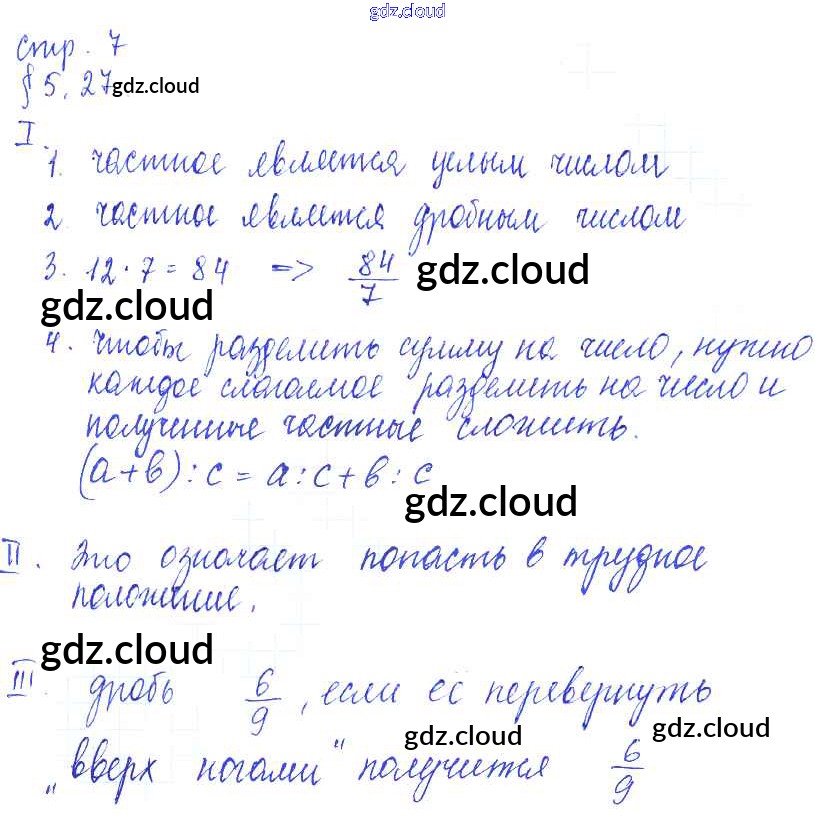 gdz.cloud
стр. 7
§ 5.27 gdz.cloud
I.
1. частное является целым числом
2. частное является дробным числом
3. 12·7=84 => 84/7 gdz.cloud
gdz.cloud
4. Чтобы разделить сумму на число, нужно
каждое слагаемое разделить на число и
полученные частные сложить.
(а+в):с=а:с+в:с
gdz.cloud
II. Это означает попасть в трудное
положение.
gdz.cloud
III. дробь 6/9, если её перевернуть
gdz.cloud gdz.cloud
„вверх ногами“ получится 6/9